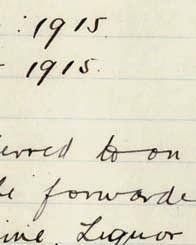 : 1915.
- 1915.
erred to on
be forwarde
ine, Liquor